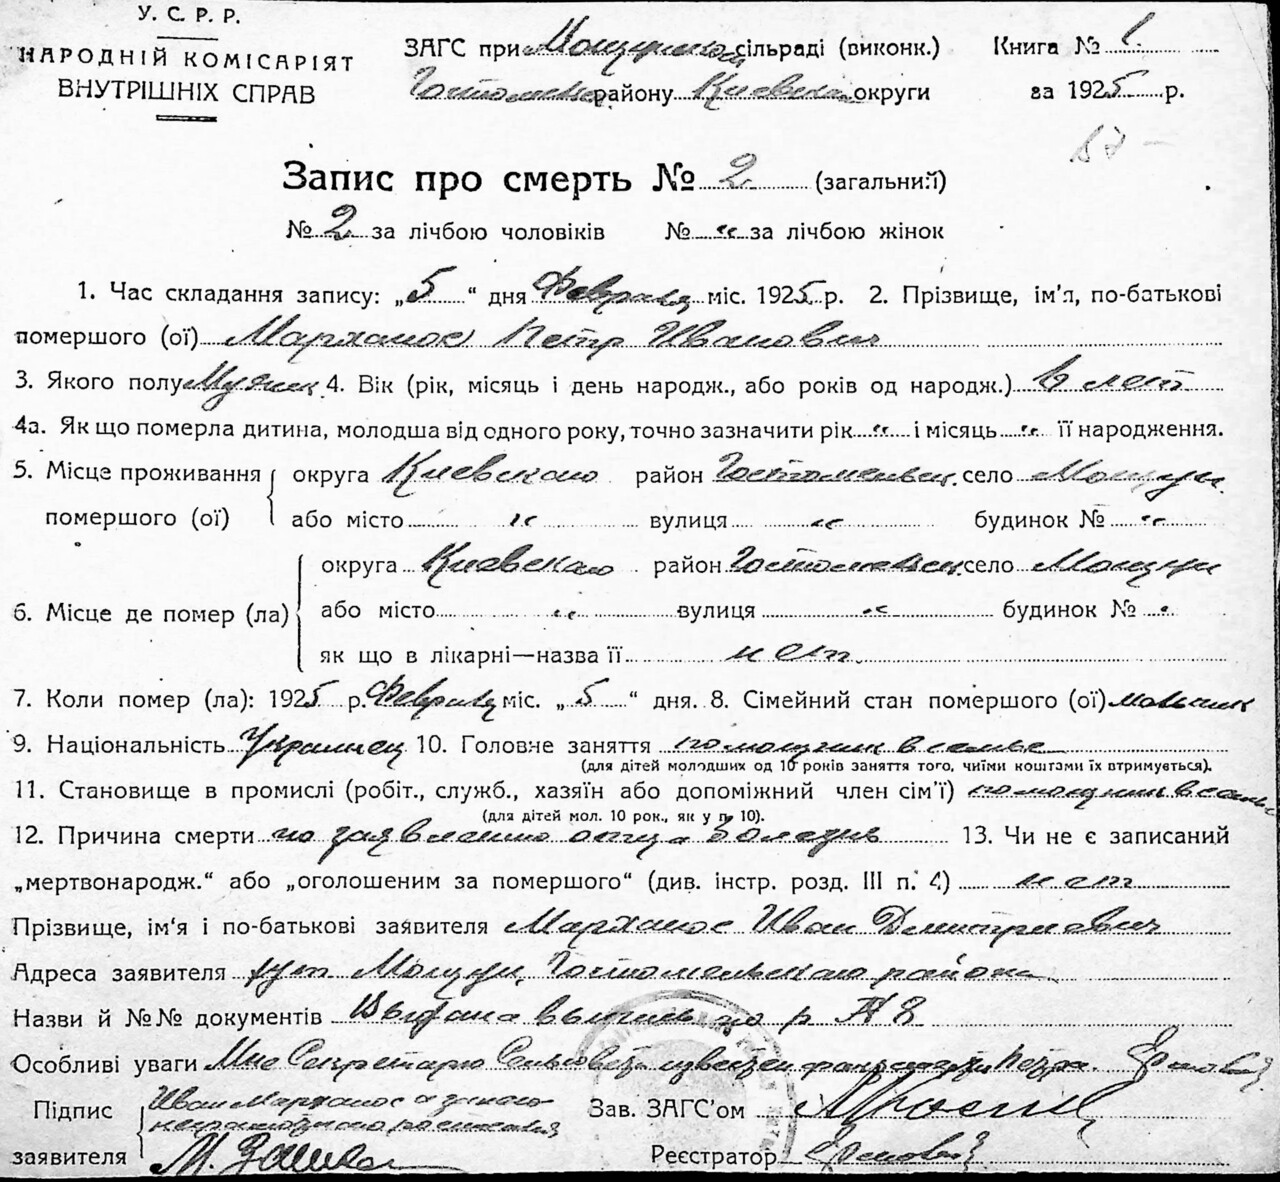 У. С. Р. Р.
НАРОДНІЙ КОМІСАРІЯТ
ВНУТРІШНІХ СПРАВ
ЗАГС при сільраді (виконк.) Книга № 1
району Киевской округи за 1925 р.
Запис про смерть № 2 (загальний)
№ 2 за лічбою чоловіків № " за лічбою жінок
1. Час складання запису: „5" дня Февраля міс. 1925 р. 2. Прізвище, ім'я, по-батькові
помершого (ої) Мархалос Петр Иванович
3. Якого полу 4. Вік (рік, місяць і день народж., або років од народж.) лет
4а. Як що померла дитина, молодша від одного року, точно зазначити рік " і місяць " її народження.
5. Місце проживання округа Киевского район Гостомельск. село Мощун
помершого (ої) або місто " вулиця " будинок № "
6. Місце де помер (ла) округа Киевского район село Мощун
або місто " вулиця " будинок № "
як що в лікарні—назва її нет
7. Коли помер (ла): 1925 р. Февраля міс. „5" дня. 8. Сімейний стан помершого (ої) мальчик
9. Національність Украинец 10. Головне заняття помощник в семье
(для дітей молодших од 10 років заняття того, чиїми коштами їх втримується).
11. Становище в промислі (робіт., служб., хазяїн або допоміжний член сім'ї) помощник в семье
(для дітей мол. 10 рок., як у п. 10).
12. Причина смерти по заявлению отца болезнь 13. Чи не є записаний
„мертвонародж." або „оголошеним за помершого" (див. інстр. розд. III п. 4) нет
Прізвище, ім'я і по-батькові заявителя Мархалос Иван Дмитриевич
Адреса заявителя хут. Мощун, Гостомельского района
Назви й №№ документів Выдана выпись по р №8
Особливі уваги Мне Секретарю Сельсовета известен Петра.
Підпис Иван Мархалос а за него
неграмотного расписался
заявителя М.
Зав. ЗАГС'ом
Реєстратор